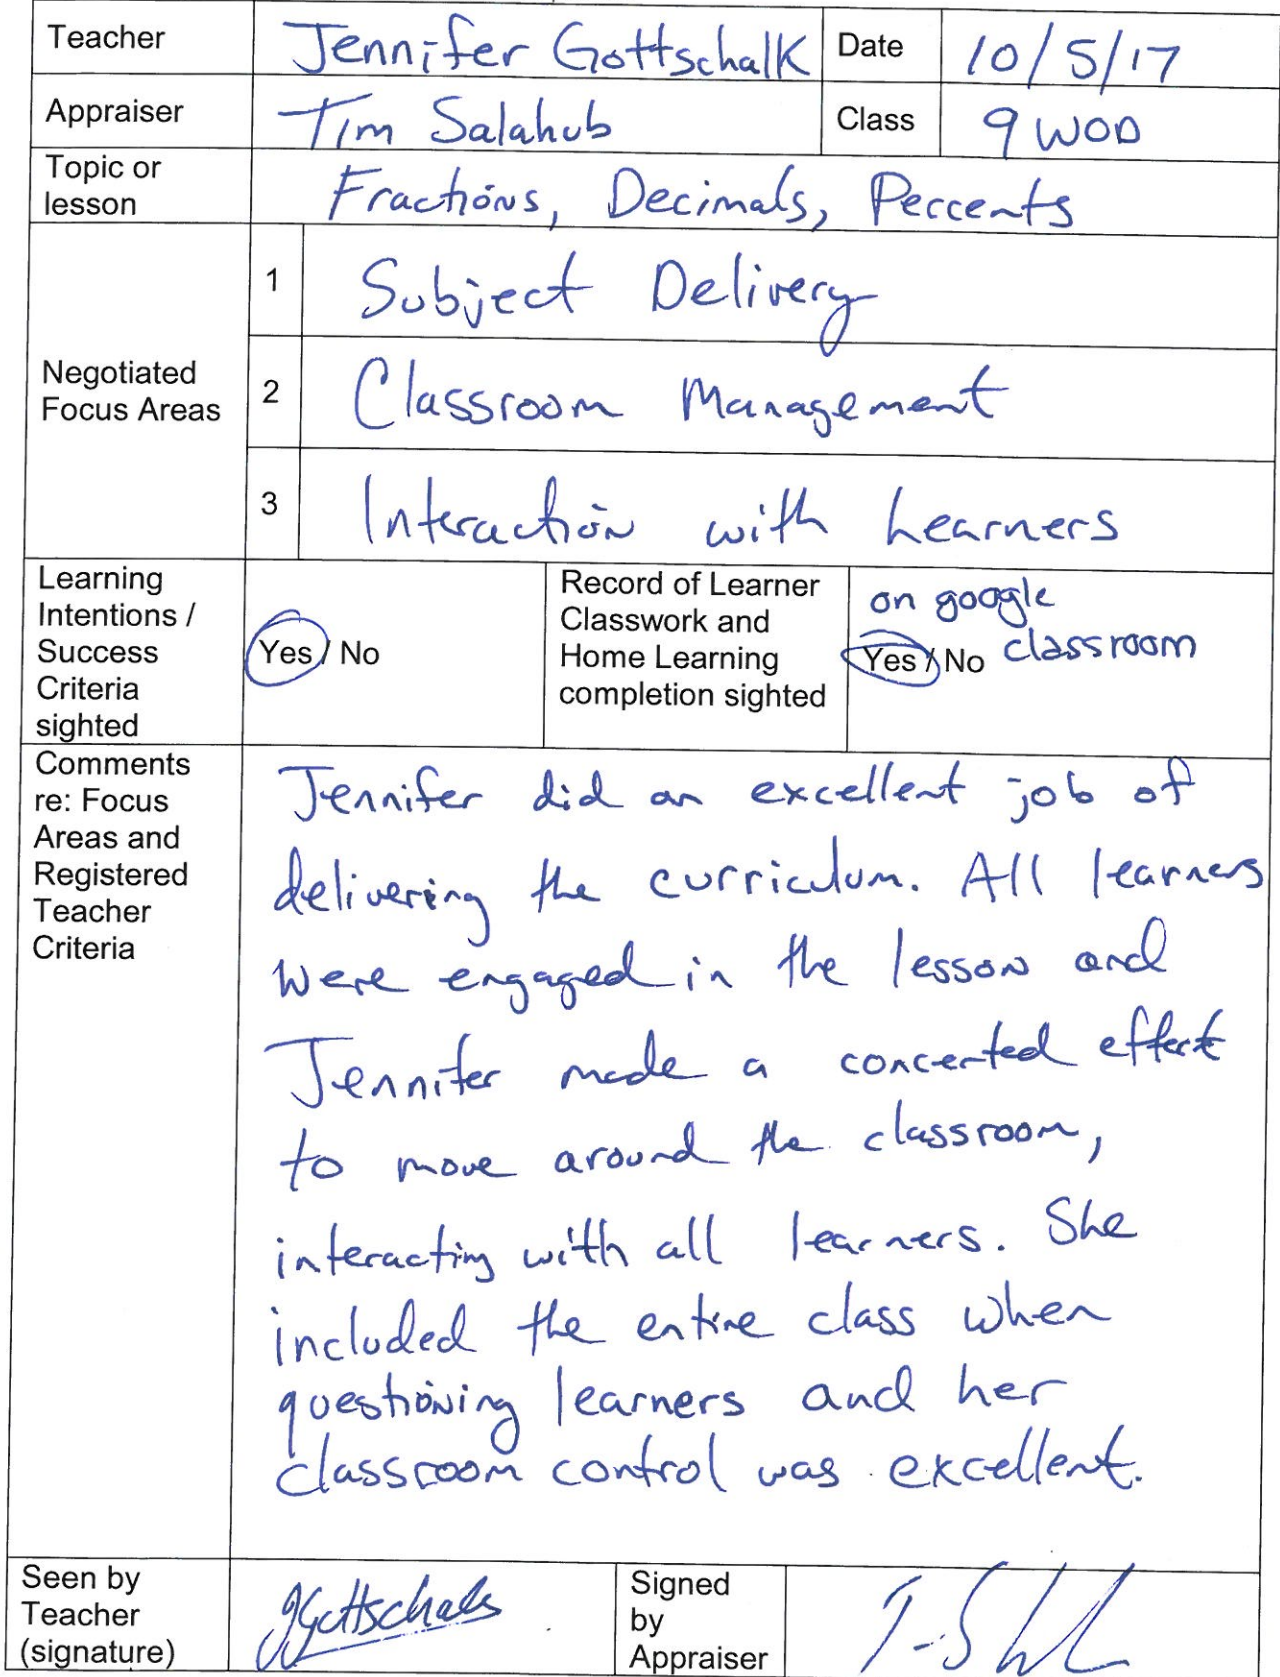 Teacher Jennifer Gottschalk Date 10/5/17
Appraiser Tim Salahub Class 9 WOD
Topic or
lesson
Fractions, Decimals, Percents
Negotiated
Focus Areas
1 Subject Delivery
2 Classroom Management
3 Interaction with Learners
Learning
Intentions /
Success
Criteria
sighted
Yes / No
Record of Learner
Classwork and
Home Learning
completion sighted
on google
classroom
Yes / No
Comments
re: Focus
Areas and
Registered
Teacher
Criteria
Jennifer did an excellent job of
delivering the curriculum. All learners
were engaged in the lesson and
Jennifer made a concerted effort
to move around the classroom,
interacting with all learners. She
included the entire class when
questioning learners and her
classroom control was excellent.
Seen by
Teacher
(signature)
JGottschalk
Signed
by
Appraiser